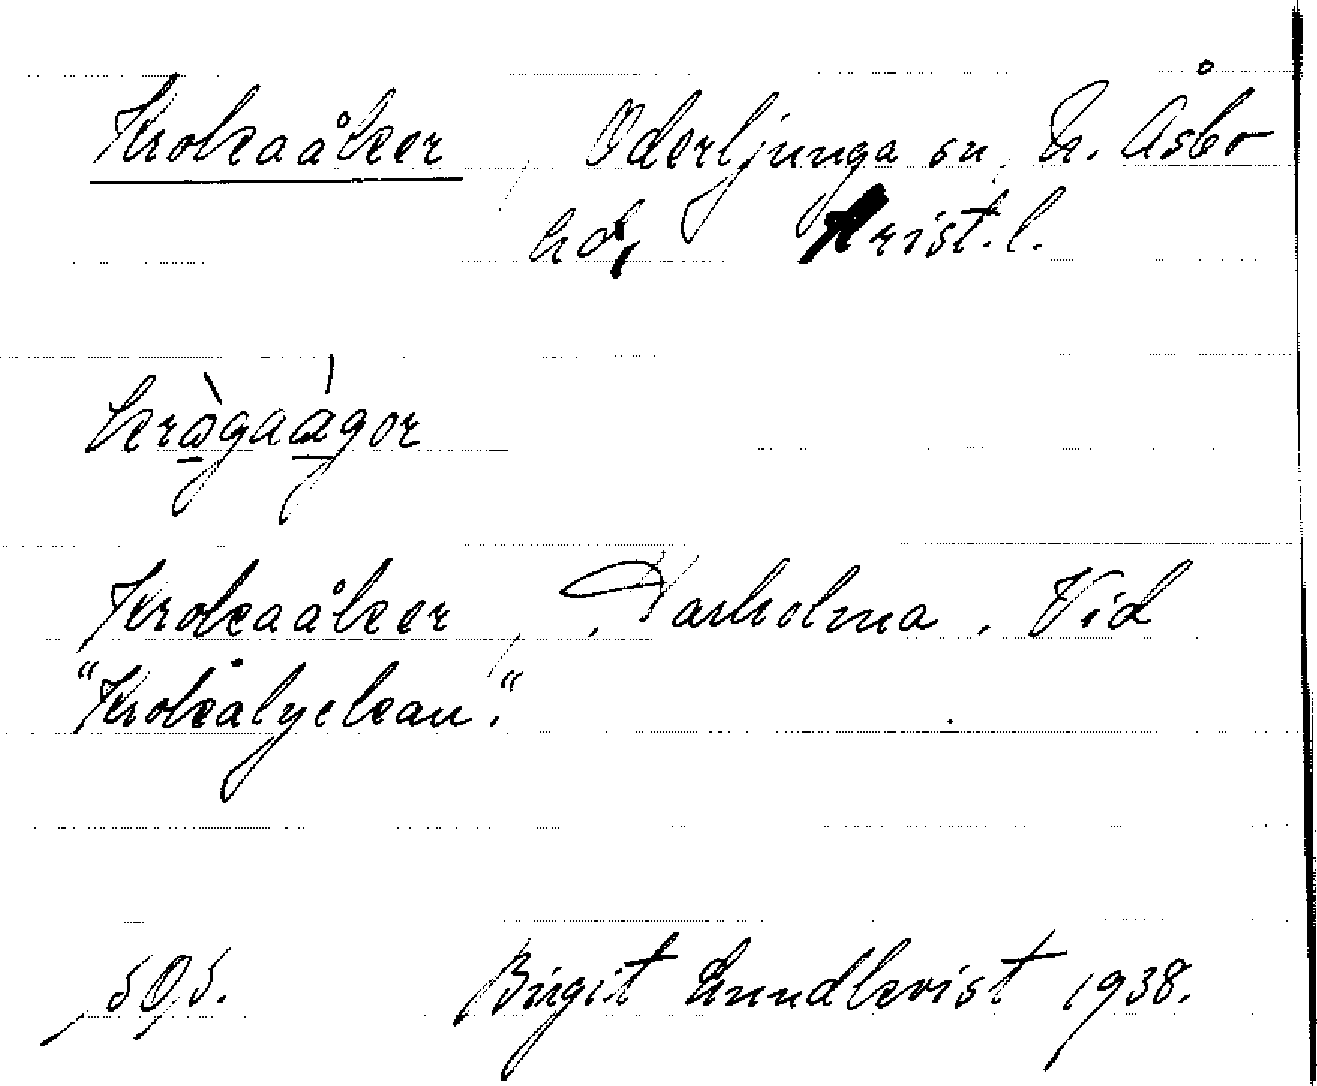 Krokaåker, Oderljunga sn, N. Åsbo
hd, Krist.l.
kràgaágor
Krokaåker, Karholma. Vid
"Krokalyckan."
Birgit Lundkvist 1938.